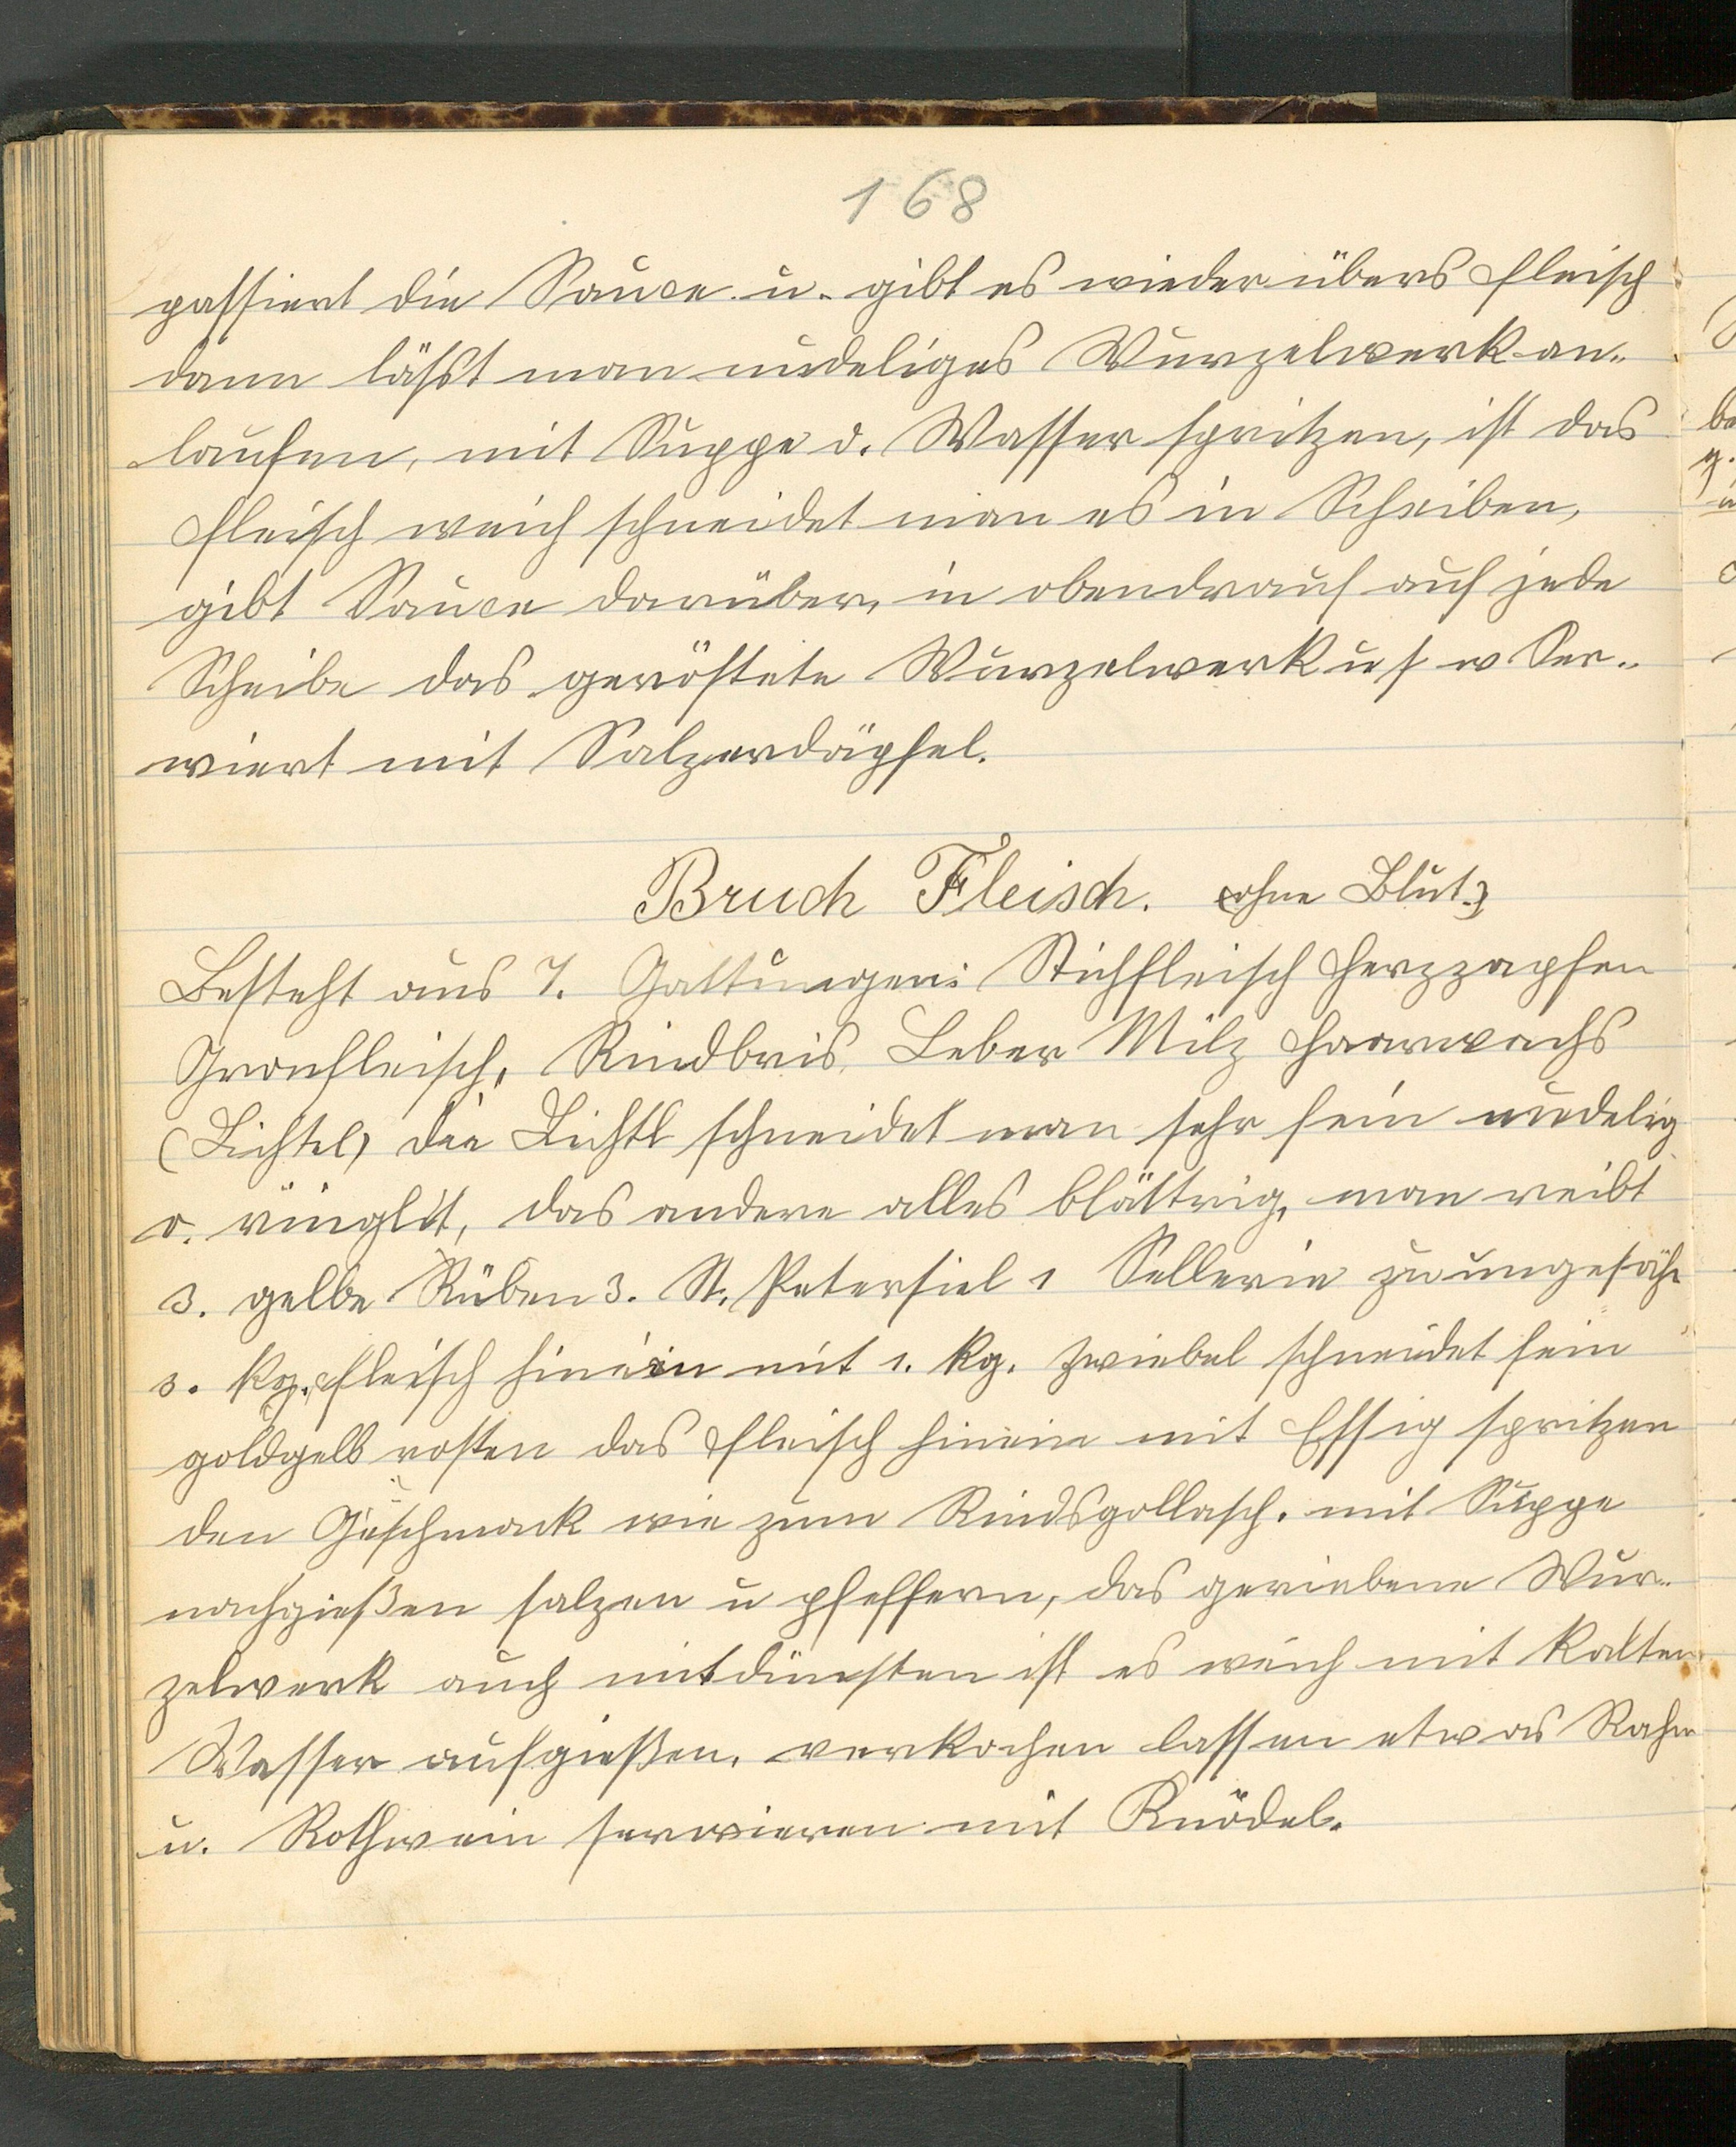 168
passiert die Sauce u. gibt es wieder übers Fleisch
dann läßt man nudeliges Wurzelwerk an-
laufen, mit Suppe o. Wasser spritzen, ist das
Fleisch weich schneidet man es in Scheiben,
gibt Sauce darüber, u obendrauf auf jede
Scheibe das geröstete Wurzelwerk u s w Ser-
wiert mit Salzerdäpfel.
Bruch Fleisch. (ohne Blut.)
Besteht aus 7. Gattungen: Stichfleisch Herzzapfen
Gronfleisch, Rindbris, Leber Milz Haarwachs
(Lichtel) die Lichtl schneidet man sehr fein nudelig
o. ringlit, das andere alles blättrig, man reibt
3. gelbe Rüben 3. St. Petersiel 1 Sellerie zu ungefähr
3. Kg. Fleisch hinein mit 1. Kg. Zwiebel schneidet fein
goldgelb rosten das Fleisch hinein mit Essig spritzen
den Geschmack wie zum Rindsgollasch. mit Suppe
nachgießen salzen u pfeffern, das geriebene Wur-
zelwerk auch mitdünsten ist es weich mit Kalten
Wasser aufgießen, verkochen lassen etwas Rahm
u. Rothwein serwieren mit Knödel.